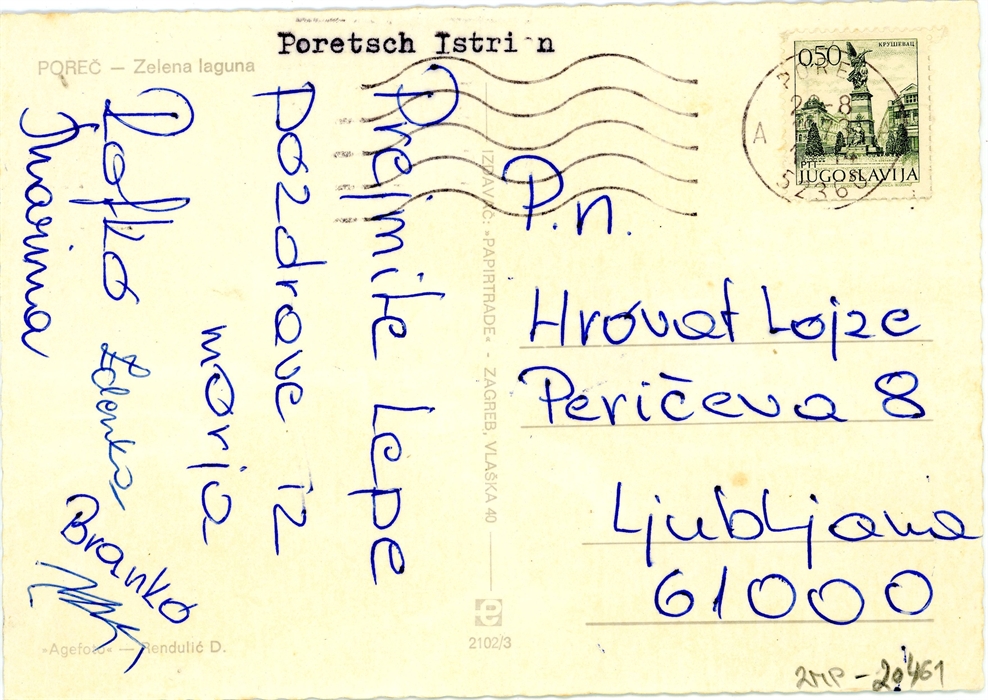 Poretsch Istri n
POREČ — Zelena laguna
Prejmite lepe
pozdrave iz
morja
Zdenka
Branko
Marina
IZDAVAČ: »PAPIRTRADE« - ZAGREB, VLAŠKA 40
P.n.
Hrovat Lojze
Peričeva 8
Ljubljana
61000
0,50
КРУШЕВАЦ
PTT
JUGOSLAVIJA
A
»Agefoto« — Rendulić D.
2102/3